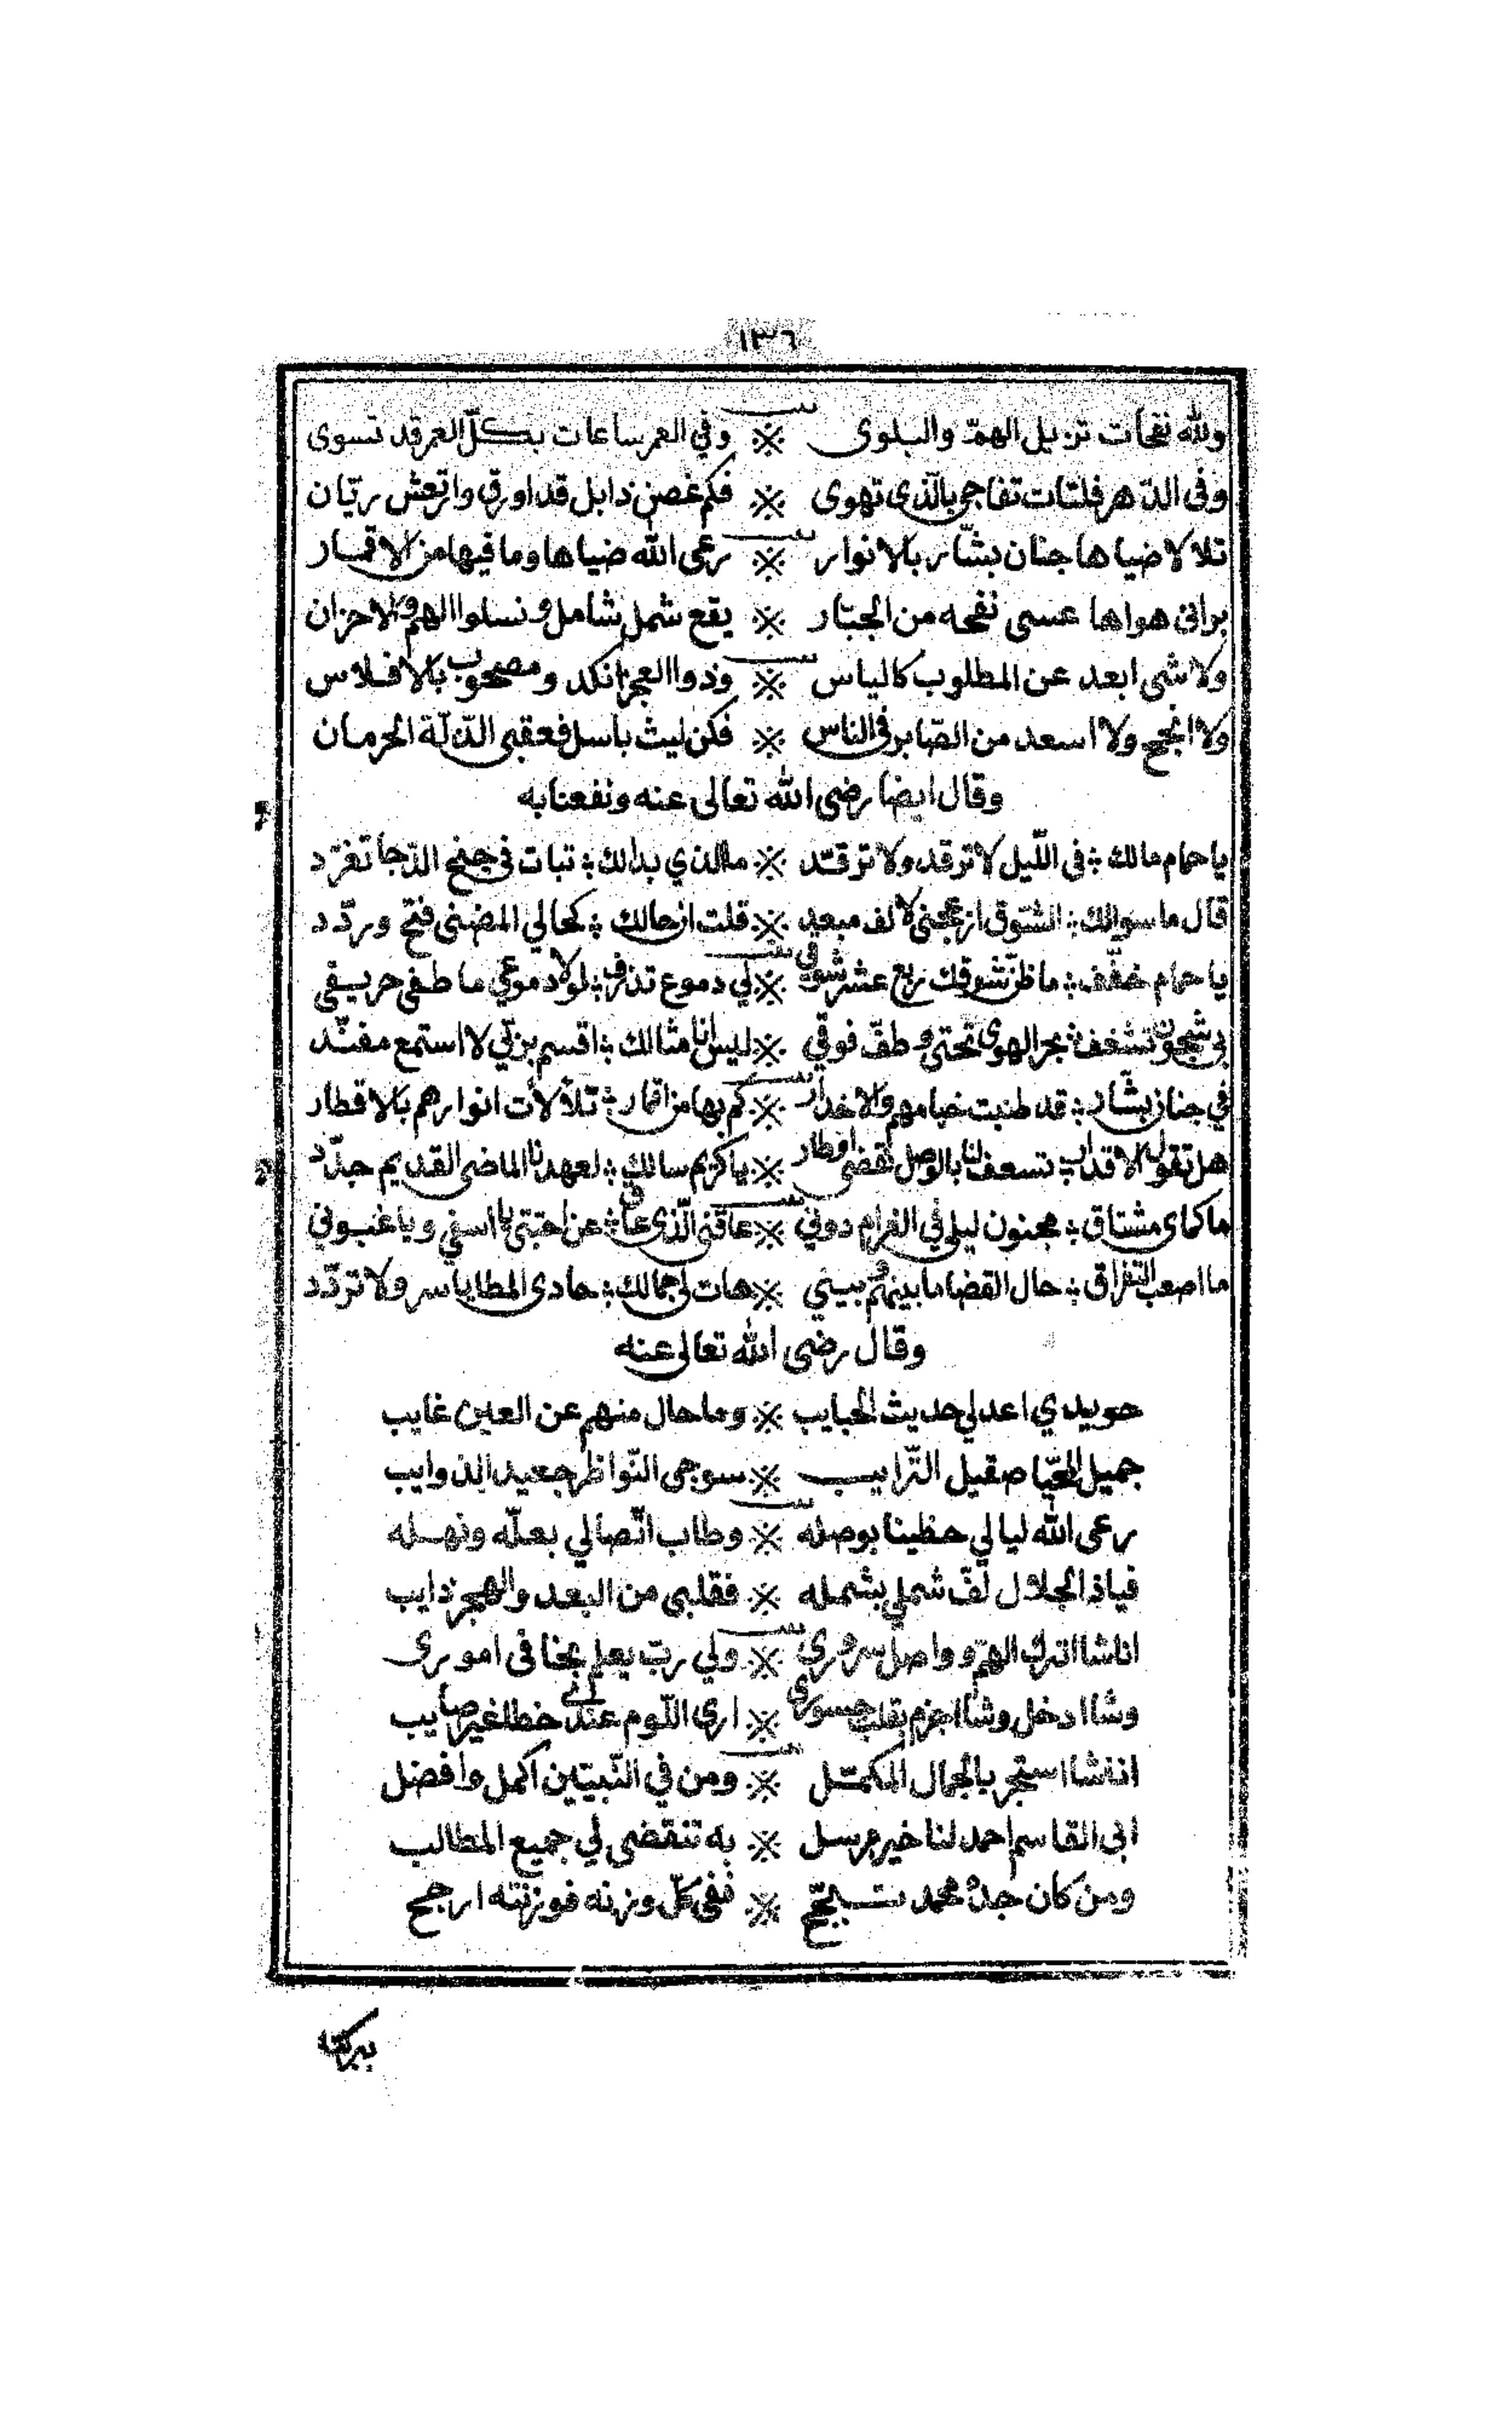 ١٣٦
ولله نفحات تزيل الهمّ والبلوى ※ وفي العمر ساعات بكلّ العمر قد تسوى
وفى الدّهر فلتات تفاجى بالّذى تهوى ※ فكم غصن ذابل قد اورق وارتعش ريّان
تلالا ضياها جنان بشّار بالانوار ※ رعى الله ضياها وما فيها من الاقمار
برانى هواها عسى نفحه من الجبّار ※ يقع شمل شامل ونسلوا الهم والاحزان
ولا شى ابعد عن المطلوب كالياس ※ وذوا العجز انكد ومصحوب بالافلاس
ولا انجح ولا اسعد من الصّابر فى الناس ※ فكن ليث باسل فعقبى الذلّة الحرمان
وقال ايضا رضى الله تعالى عنه ونفعنا به
يا حمام مالك ؛ فى اللّيل لا ترقد ولا ترقّد ※ ما الذي بدالك ؛ تبات فى جنح الدّجا تغرّد
قال ما سوالك ؛ الشوق ازعجنى لالف مبعد ※ قلت ان حالك ؛ كحالي المضنى فتح وردّد
يا حمام خفّف ؛ ما ظنّ شوقك ربع عشر شوقي ※ لي دموع تذرف ؛ لولا دموعي ما طفى حريقى
بي شجون تشغف ؛ بحر الهوى تحتى وطفّ فوقي ※ ليس انا مثالك ؛ اقسم بربّي لا استمع مفنّد
في جنان بشّار ؛ قد طنبت خيامهم والاخدار ※ كم بها من اقمار ؛ تلألأت انوارهم بالاقطار
هل تقول الاقدار ؛ تسعف لنا بالوصل نقضى اوطار ※ يا كريم سالك ؛ لعهدنا الماضى القديم جدّد
ما كماى مشتاق ؛ مجنون ليلى في الغرام دوني ※ عاقنى الّذى عاق ؛ عن احبتى يا اسفي ويا غبوني
ما اصعب التفراق ؛ حال القضا ما بينهم وبيني ※ هات لى جمالك ؛ حادى المطايا سر ولا تردّد
وقال رضى الله تعالى عنه
حويدي اعد لي حديث الحبايب ※ وما حال منهم عن العين غايب
جميل المحيّا صقيل التّرايب ※ سوجى النّواظر جعيد الذوايب
رعى الله ليالي حظينا بوصله ※ وطاب اتّصالي بعلّه ونهله
فيا ذا الجلال لفّ شملي بشمله ※ فقلبى من البعد والهجر ذايب
انا شا اترك الهمّ وواصل سروري ※ ولي ربّ يعلم بخافى امورى
وشا ادخل وشا اجزم بقلب جسورى ※ ارى اللّوم عندي خطا غير صايب
انا شا استجر بالجمال المكمّل ※ ومن في النّبيّين اكمل وافضل
ابى القاسم احمد لنا خير مرسل ※ به تنقضى لي جميع المطالب
ومن كان جدّه محمد تبجّح ※ ففى كلّ وزنه فوزنته ارجح
ببركته